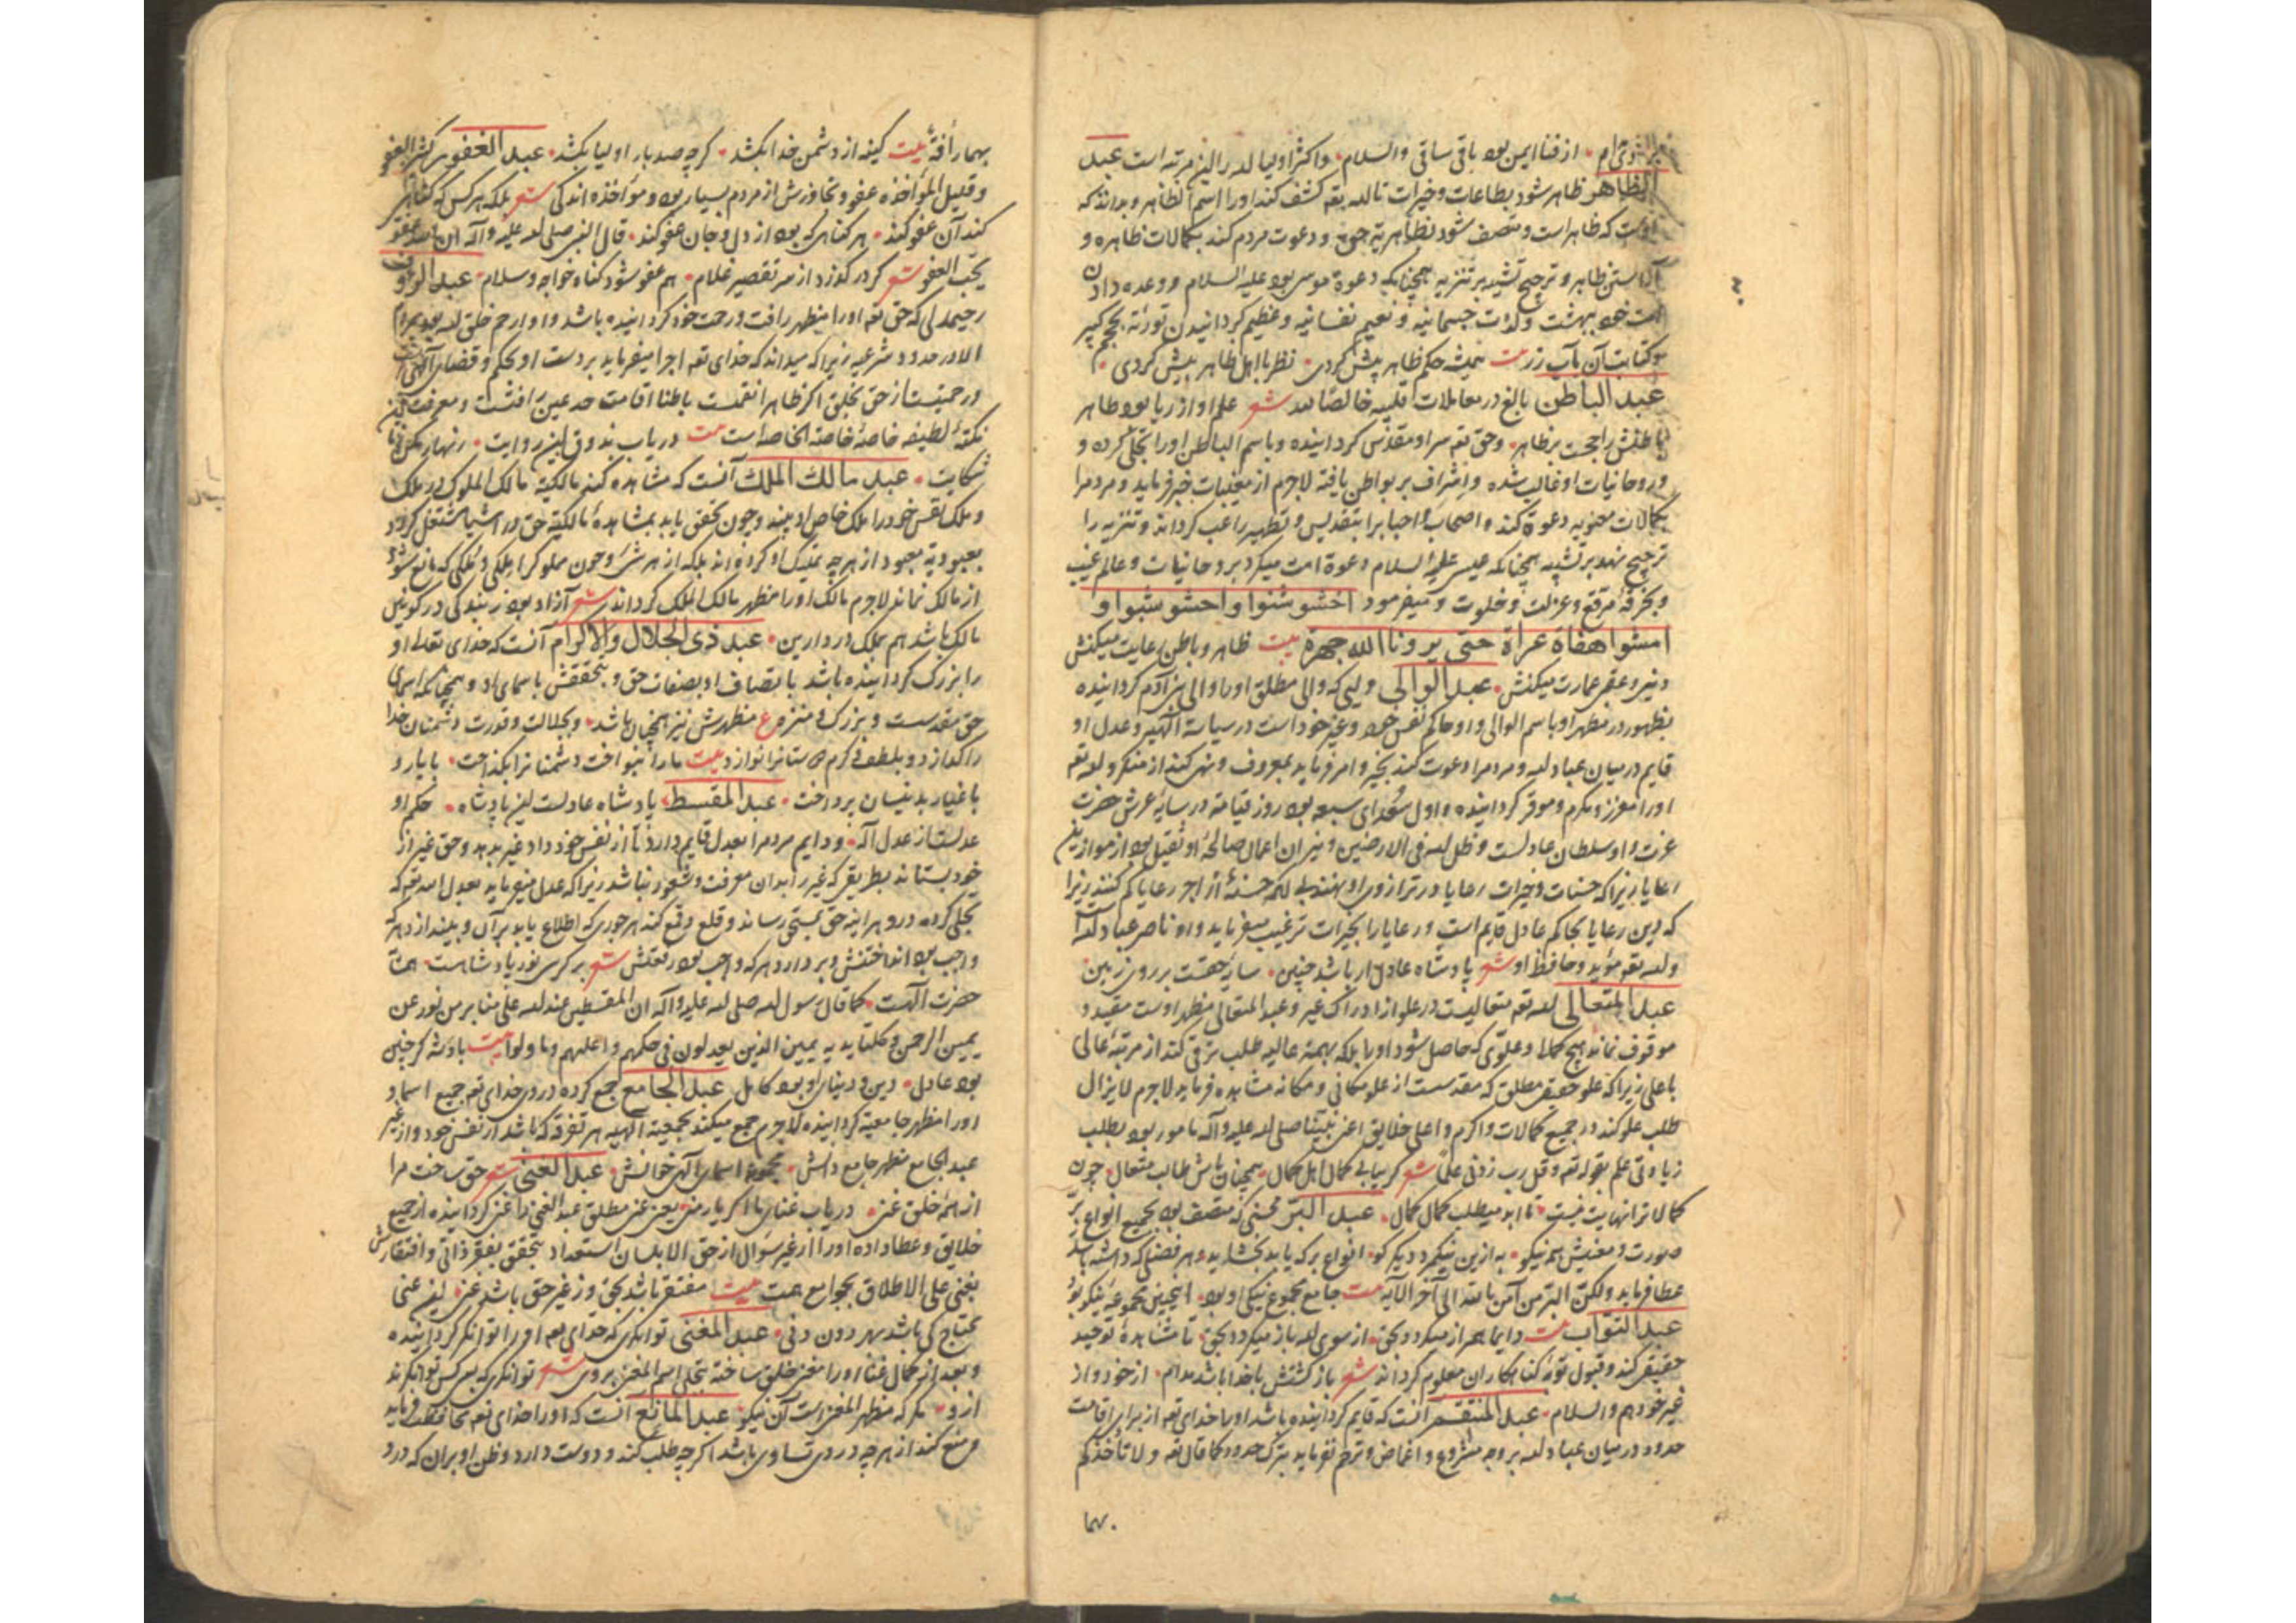 از فنا ایمن بود باقی ساقی والسلام واکثر اولیا لله را این مرتبه است عبد
الظاهر ظاهر شود بطاعات و خیرات تا الله تعه کشف کند او را اسم الظاهر و بداند که
اوست که ظاهر است و متصف شود بظاهریة حق و دعوت مردم کند بکمالات ظاهره و
آراستن ظاهر و ترجیح تشبیه بر تنزیه همچنانکه دعوة موسی بود علیه السلام و وعده دادن
امت خود ببهشت ولذات جسمانیه و نعیم نفسانیه و عظیم گردانیدن توریة بحجم کبیر
و کتابت آن بآب زر بیت همیشه حکم ظاهر پیش کردی نظر با اهل ظاهر بیش کردی
عبد الباطن بالغ در معاملات قلبیه خالصا لله شعر علم او از ریا بود طاهر
باطنش راجحست بر ظاهر وحق تعه سر او مقدس گردانیده و باسم الباطن او را تجلی کرده و
و روحانیات او غالب شده و اشراف بر بواطن یافته لاجرم از مغیبات خبر فرماید و مردم را
بکمالات معنویه دعوة کند و اصحاب و احبا برا بتقدیس و تطهیر راغب گرداند و تنزیه را
ترجیح نهد بر تشبیه همچنانکه عیسی علیه السلام دعوة امت میکرد بروحانیات و عالم غیب
و بخرقه مرقع و عزلت و خلوت و میفرمود اخشوشنوا واخشوشبوا و
امشوا حفاة عراة حتی یروناالله جهرة بیت ظاهر و باطن رعایت میکنش
دنیی و عقبی عمارت میکنش عبد الوالی ولیی که والی مطلق او را والی بنی آدم گردانیده
بظهور در مظهر او باسم الوالی و او حاکم نفس خود و غیر خود است در سیاسة الهیه و عدل او
قایم در میان عباد الله و مردم را دعوت کند بخیر و امر فرماید بمعروف و نهی کند از منکر و الله تعه
او را معزز و مکرم و موقر گردانیده و اول سعدای سبعه بود روز قیامة در سایه عرش حضرت
عزت و او سلطان عادلست و ظل الله فی الارضین و میزان اعمال صالحه او ثقیل بود از موازین
رعایا زیرا که حسنات و خیرات رعایا در ترازوی او بنهند بی آنکه حسنهٔ از اجر رعایا کم کنند زیرا
که دین رعایا بحاکم عادل قایم است و رعایا را بخیرات ترغیب میفرماید و او ناصر عباد الله است
والله تعه مؤید و حافظ او شعر پادشاه عادل ار باشد چنین سایهٔ حقست بر روی زمین
عبد المتعالی الله تعه متعالیست در علو از ادراک غیر و عبد المتعالی مظهر اوست مقید و
موقوف نماند بهیچ کمال و علوی که حاصل شود او را بلکه بهمة عالیه طلب ترقی کند از مرتبهٔ عالی
باعلی زیرا که علو حقیقی مطلق که مقدسست از علو مکانی و مکانة مشاهده فرماید لاجرم لایزال
طلب علو کند در جمیع کمالات و اکرم و اعلی خلایق اعنی نبینا صلی الله علیه وآله مامور بود بطلب
زیادتی علم بقوله تعه وقل رب زدنی علما شعر گر بیابی کمال اهل کمال همچنان باش طالب متعال چون
کمالات را نهایت نیست تا ابد میطلب کمال کمال عبد البر محسنی که متصف بود بجمیع انواع بر
صورت و معنیش همه نیکو به ازین نیکمرد دیگر کو انواع بر که یابد بخشاید و هر فضلی که داشته باشد
عطا فرماید ولکن البر من آمن بالله الی آخر الآیه بیت جامع مجموع نیکی او بود اینچنین مجموعه نیکو بود
عبد التواب بیت دایما هم راز میگردد بحق از سوی الله باز میگردد بحق تا مشاهدهٔ توحید
حقیقی کند و قبول توبه گناهکاران معلوم گرداند شعر بازگشتش با خدا باشد مدام از خود و از
غیر خود هم والسلام عبد المنتقم آنست که قایم گردانیده باشد او را خدای تعه از برای اقامت
حدود در میان عباد الله بر وجه مشروع و اغماض و ترحم نفرماید بترک حدود کما قال تعه ولا تاخذکم
بهما
بهما رأفة بیت کینه از دشمن خدا بکشد گرچه صد بار اولیا بکشد عبد الغفور کثیر العفو
و قلیل المواخذه عفو و تجاوزش از مردم بسیار بود و مواخذه اندکی شعر بلکه هر کس که گناهی
کند آن عفو کند هر گناهی که بود از دل و جان عفو کند قال النبی صلی الله علیه وآله ان الله عفو
یحب العفو شعر گر درگذرد از سر تقصیر غلام هم عفو شود گناه خواجه وسلام عبد الرؤف
رحیمدلی که حق تعه او را مظهر رافت و رحمت خود گردانیده باشد و او ارحم خلق الله بود بمردم
الا در حدود شرعیه زیرا که میداند که خدای تعه اجرا میفرماید بر دست او بحکم و قضای الهی
و رحمتیست از حق بخلق اگر ظاهرا نقمتست باطنا اقامت حد عین رافتست و معرفت این
نکتهٔ لطیفه خاصهٔ خاصة الخاصه است بیت دریاب بذوق این روایت زنهار مکن
شکایت عبد مالك الملك آنست که مشاهده کند مالکیة مالک الملوک در ملک
و ملک نفس خود را ملک خاص او بیند و چون تحقق یابد بمشاهدهٔ مالکیة حق در اشیا مشتغل گردد
بعبودیة معبود از هر چه تملیک او کرده اند بلکه از هر شیء و چون مملوک را ملکی و ملکی که مانع شود
از مالک نماند لاجرم مالک او را مظهر مالک الملک گرداند شعر آزاد بود ز بندگی در کونین
مالک باشد هم بملک در دارین عبد ذی الجلال والاکرام آنست که خدای تعالی او
را بزرگ گردانیده باشد با تصاف او بصفات حق و بتحققش باسمای او و همچنانکه اسمای
حق مقدسست و بزرگ و منزه ع مظهرش نیز همچنان باشد و بجلالت و قدرت دشمنان خدا
را گدازد و بلطف و کرم دوستانرا نوازد بیت ما را بنواخت دشمنانرا بگداخت با یار و
با غیار بدینسان پرداخت عبد المقسط پادشاه عادلست این پادشاه حکم او
عدلست از عدل اله و دایم مردم را بعدل قایم دارد تا از نفس خود داد غیر بدهد و حق غیر از
خود بستاند بطریقی که غیر را بدان معرفت و شعور نباشد زیرا که عدل میفرماید بعدل الله تعه که
تجلی کرده درو هر آینه حق بمستحق رساند و قلع و قمع کند هر جوری که اطلاع یابد بر آن و بیندازد هر که
واجب بود انداختنش و بردارد هر که واجب بود رفعتش شعر بر کرسی نور پادشاهست همتا
حضرت الهست کما قال رسول الله صلی الله علیه وآله ان المقسطین عند الله علی منابر من نور عن
یمین الرحمن و کلتا یدیه یمین الذین یعدلون فی حکمهم و اهلیهم و ما ولوا بیت پادشه گر چنین
بود عادل دین و دنیای او بود کامل عبد الجامع جمع کرده در وی خدای تعه جمیع اسما و
او را مظهر جامعیة گردانیده لاجرم جمع میکند بجمعیة الهیه هر تفرقه که باشد از نفس خود و از غیر
عبد الجامع مظهر جامع دانش مجموعهٔ اسمای الهی خوانش عبد الغنی شعر حق ساخت مرا
از همه خلق غنی دریاب غنای ما اگر یار منی یعنی غنی مطلق عبد الغنی را غنی گردانیده از جمیع
خلایق و عطا داده او را از غیر سؤال از حق الا بلسان استعداد بتحقق بفقر ذاتی و افتقارش
بغنی علی الاطلاق بجوامع همت بیت مفتقر باشد بحق و ز غیر حق باشد غنی این غنی
محتاج کی باشد بهر دون دنی عبد المغنی توانگری که خدای تعه او را توانگر گردانیده
و بعد از کمال غنا او را مغنی خلق ساخته بتجلی اسم المغنی بر وی شعر توانگری که بهر کس توانگری
ازو هر که مظهر المغنی است آن نیکو عبد المانع آنست که او را خدای تعه محافظت فرماید
و منع کند از هر چه در وی تساوی باشد اگرچه طلب کند و دوست دارد و ظن او بر آن که در